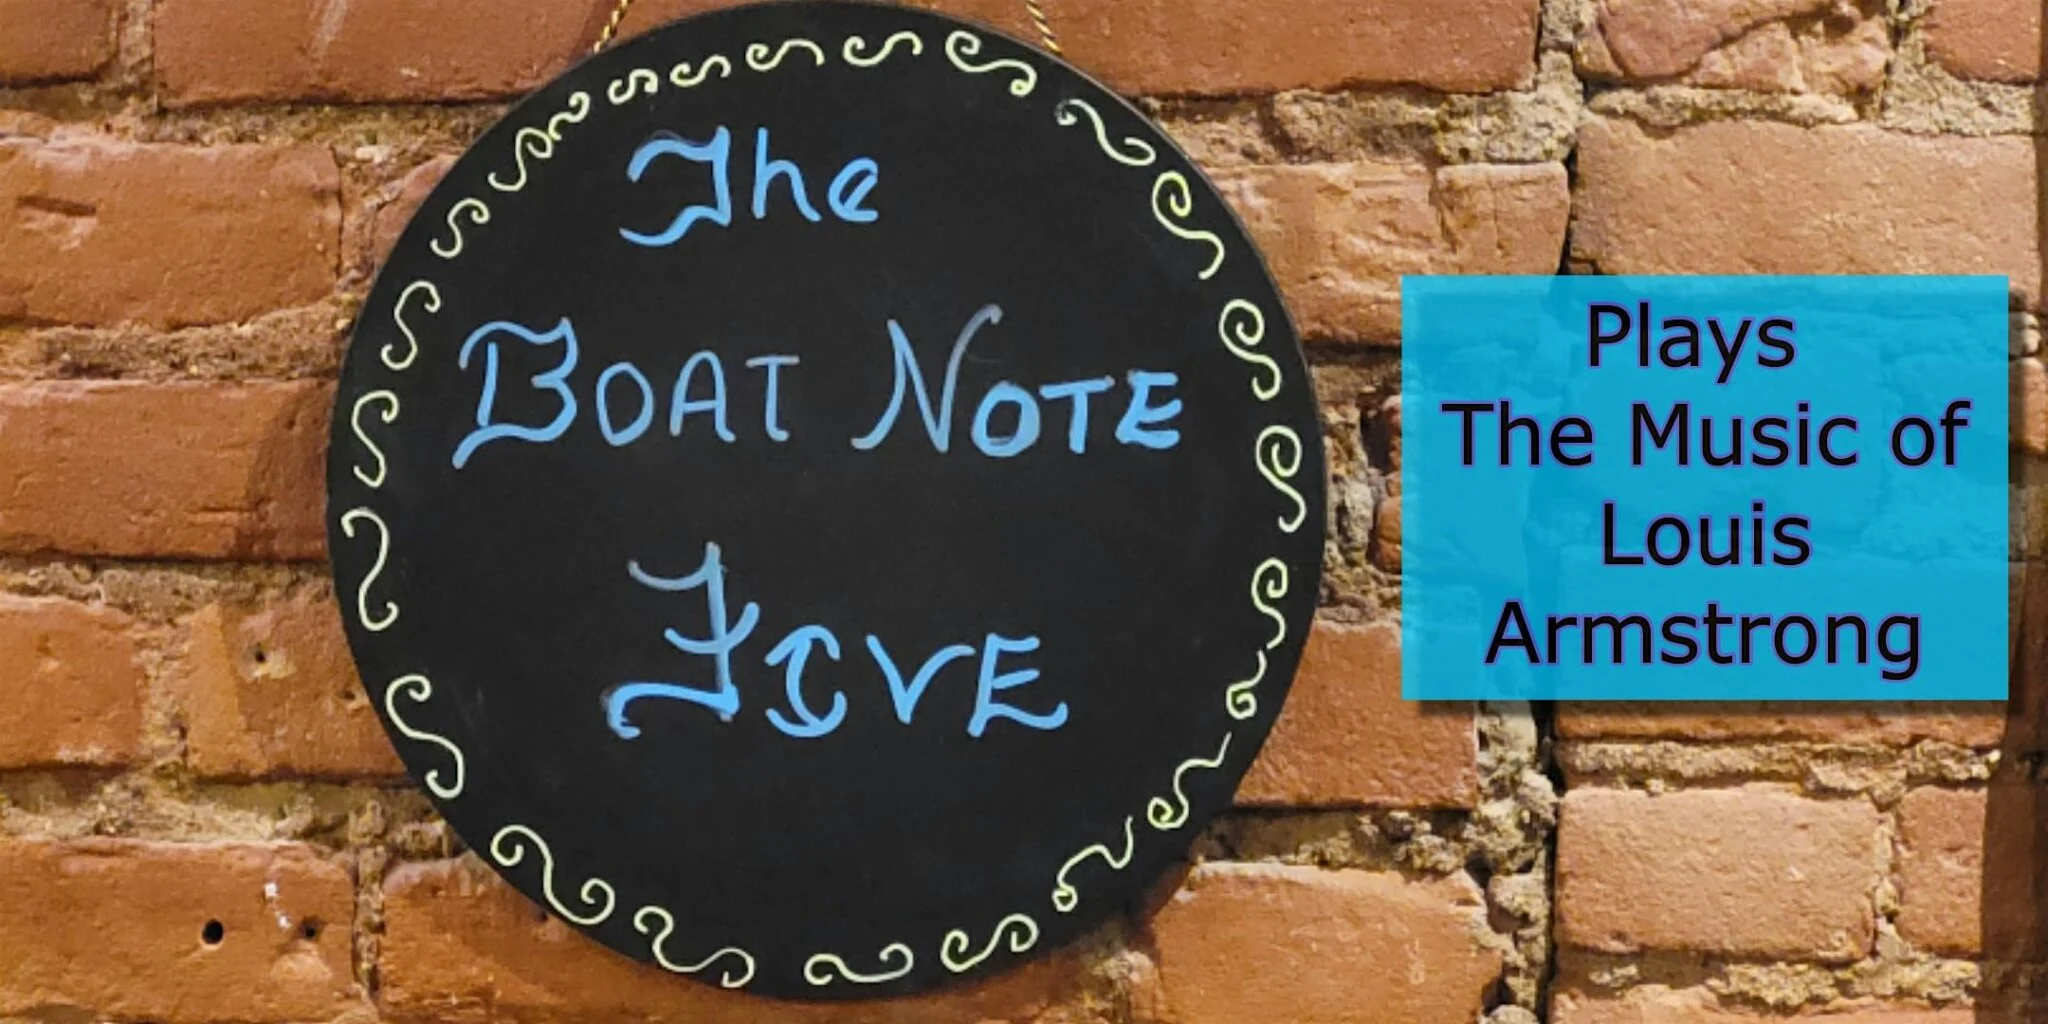 The
BOAT NOTE
FIVE
Plays
The Music of
Louis
Armstrong